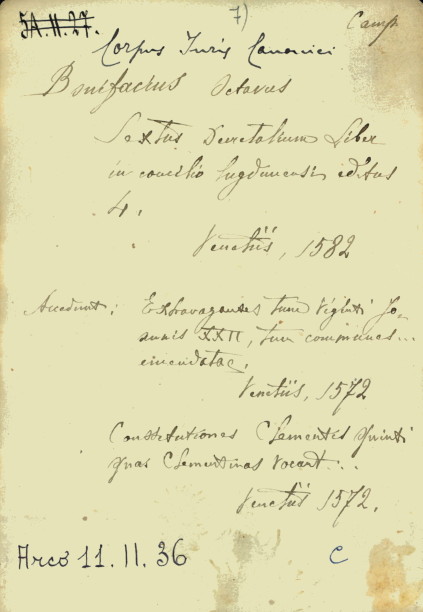 5A.II.27.
7)
Camp
Corpus Juris Canonici
Bonifacius Octavus
Sextus Decretalium Liber
in concilio Lugdunensi editus
4.
Venetiis, 1582
Accedunt: Extravagantes tum Viginti Jo-
annis XXII, tum communes...
emendatae.
Venetiis, 1572
Constitutiones Clementis Quinti
quas Clementinas vocant...
Venetiis 1572.
Arco 11.II.36
C